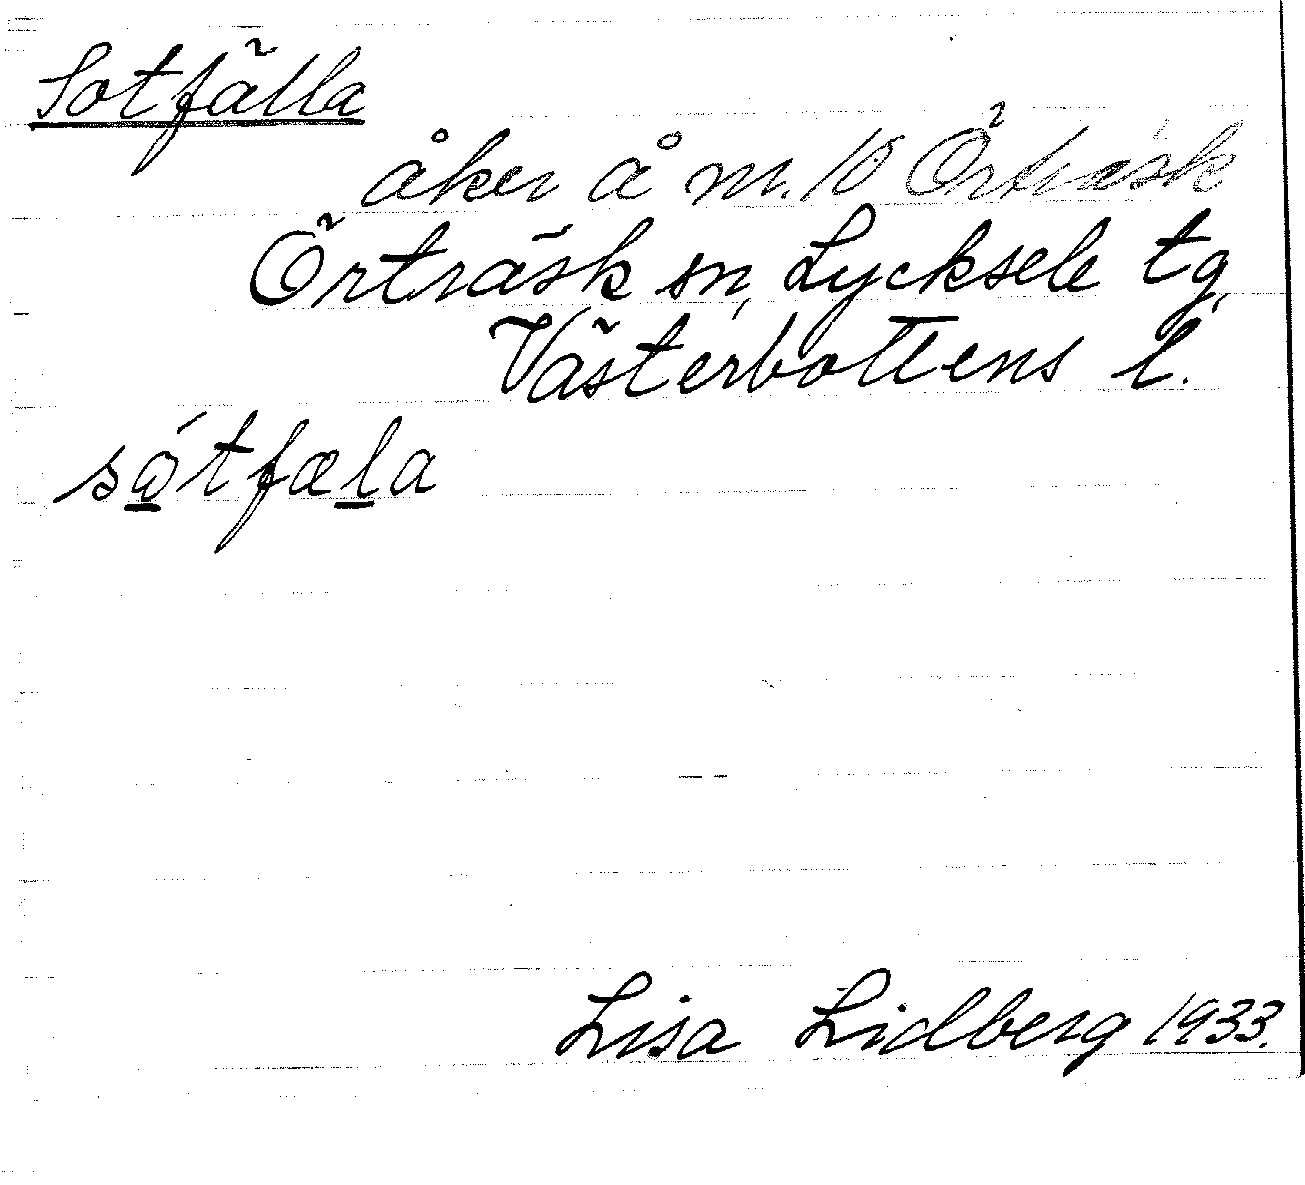 Sotfälla
åker å m. 10 Örträsk
Örträsk sn, Lycksele tg,
Västerbottens l.
só̲tfæl̲a
Lisa Lidberg 1933.